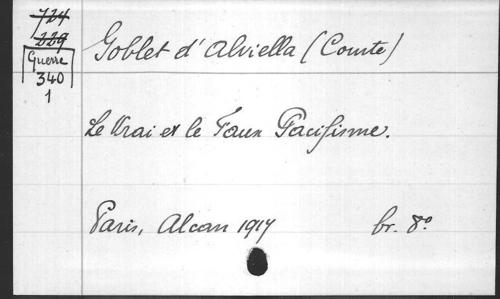 724
229
Guerre
340
1
Goblet d'Alviella (Comte)
Le Vrai et le Faux Pacifisme.
Paris, Alcan 1917 br. 8°